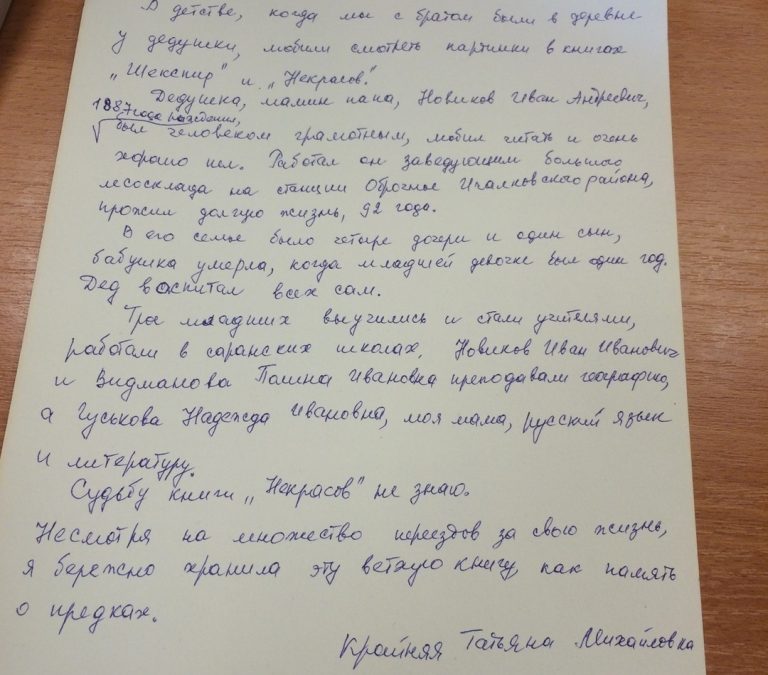 В детстве, когда мы с братом были в деревне
у дедушки, любили смотреть картинки в книгах
„Шекспир" и „Некрасов".
Дедушка, мамин папа, Новиков Иван Андреевич,
1887 года рождения,
был человеком грамотным, любил читать и очень
хорошо пел. Работал он заведующим большого
лесосклада на станции Оброчное Ичалковского района,
прожил долгую жизнь, 92 года.
В его семье было четыре дочери и один сын,
бабушка умерла, когда младшей девочке был один год.
Дед воспитал всех сам.
Трое младших выучились и стали учителями,
работали в саранских школах. Новиков Иван Иванович
и Видманова Полина Ивановна преподавали географию,
а Гуськова Надежда Ивановна, моя мама, русский язык
и литературу.
Судьбу книги „Некрасов" не знаю.
Несмотря на множество переездов за свою жизнь,
я бережно хранила эту ветхую книгу как память
о предках.
Крайняя Татьяна Михайловна